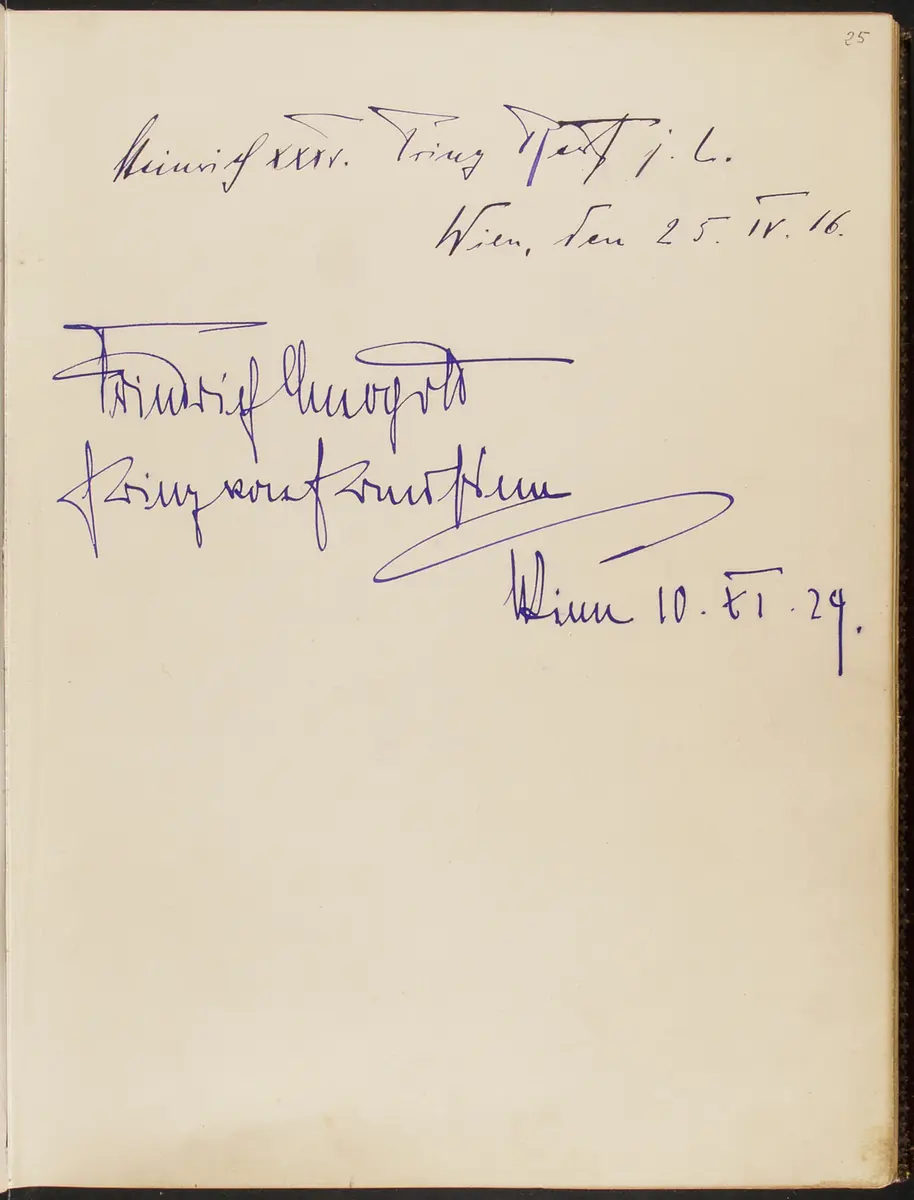 25
Heinrich XXXV. Prinz Reuß j. L.
Wien, den 25. IV. 16.
Friedrich Leopold
Prinz von Preussen
Wien 10. XI. 24.